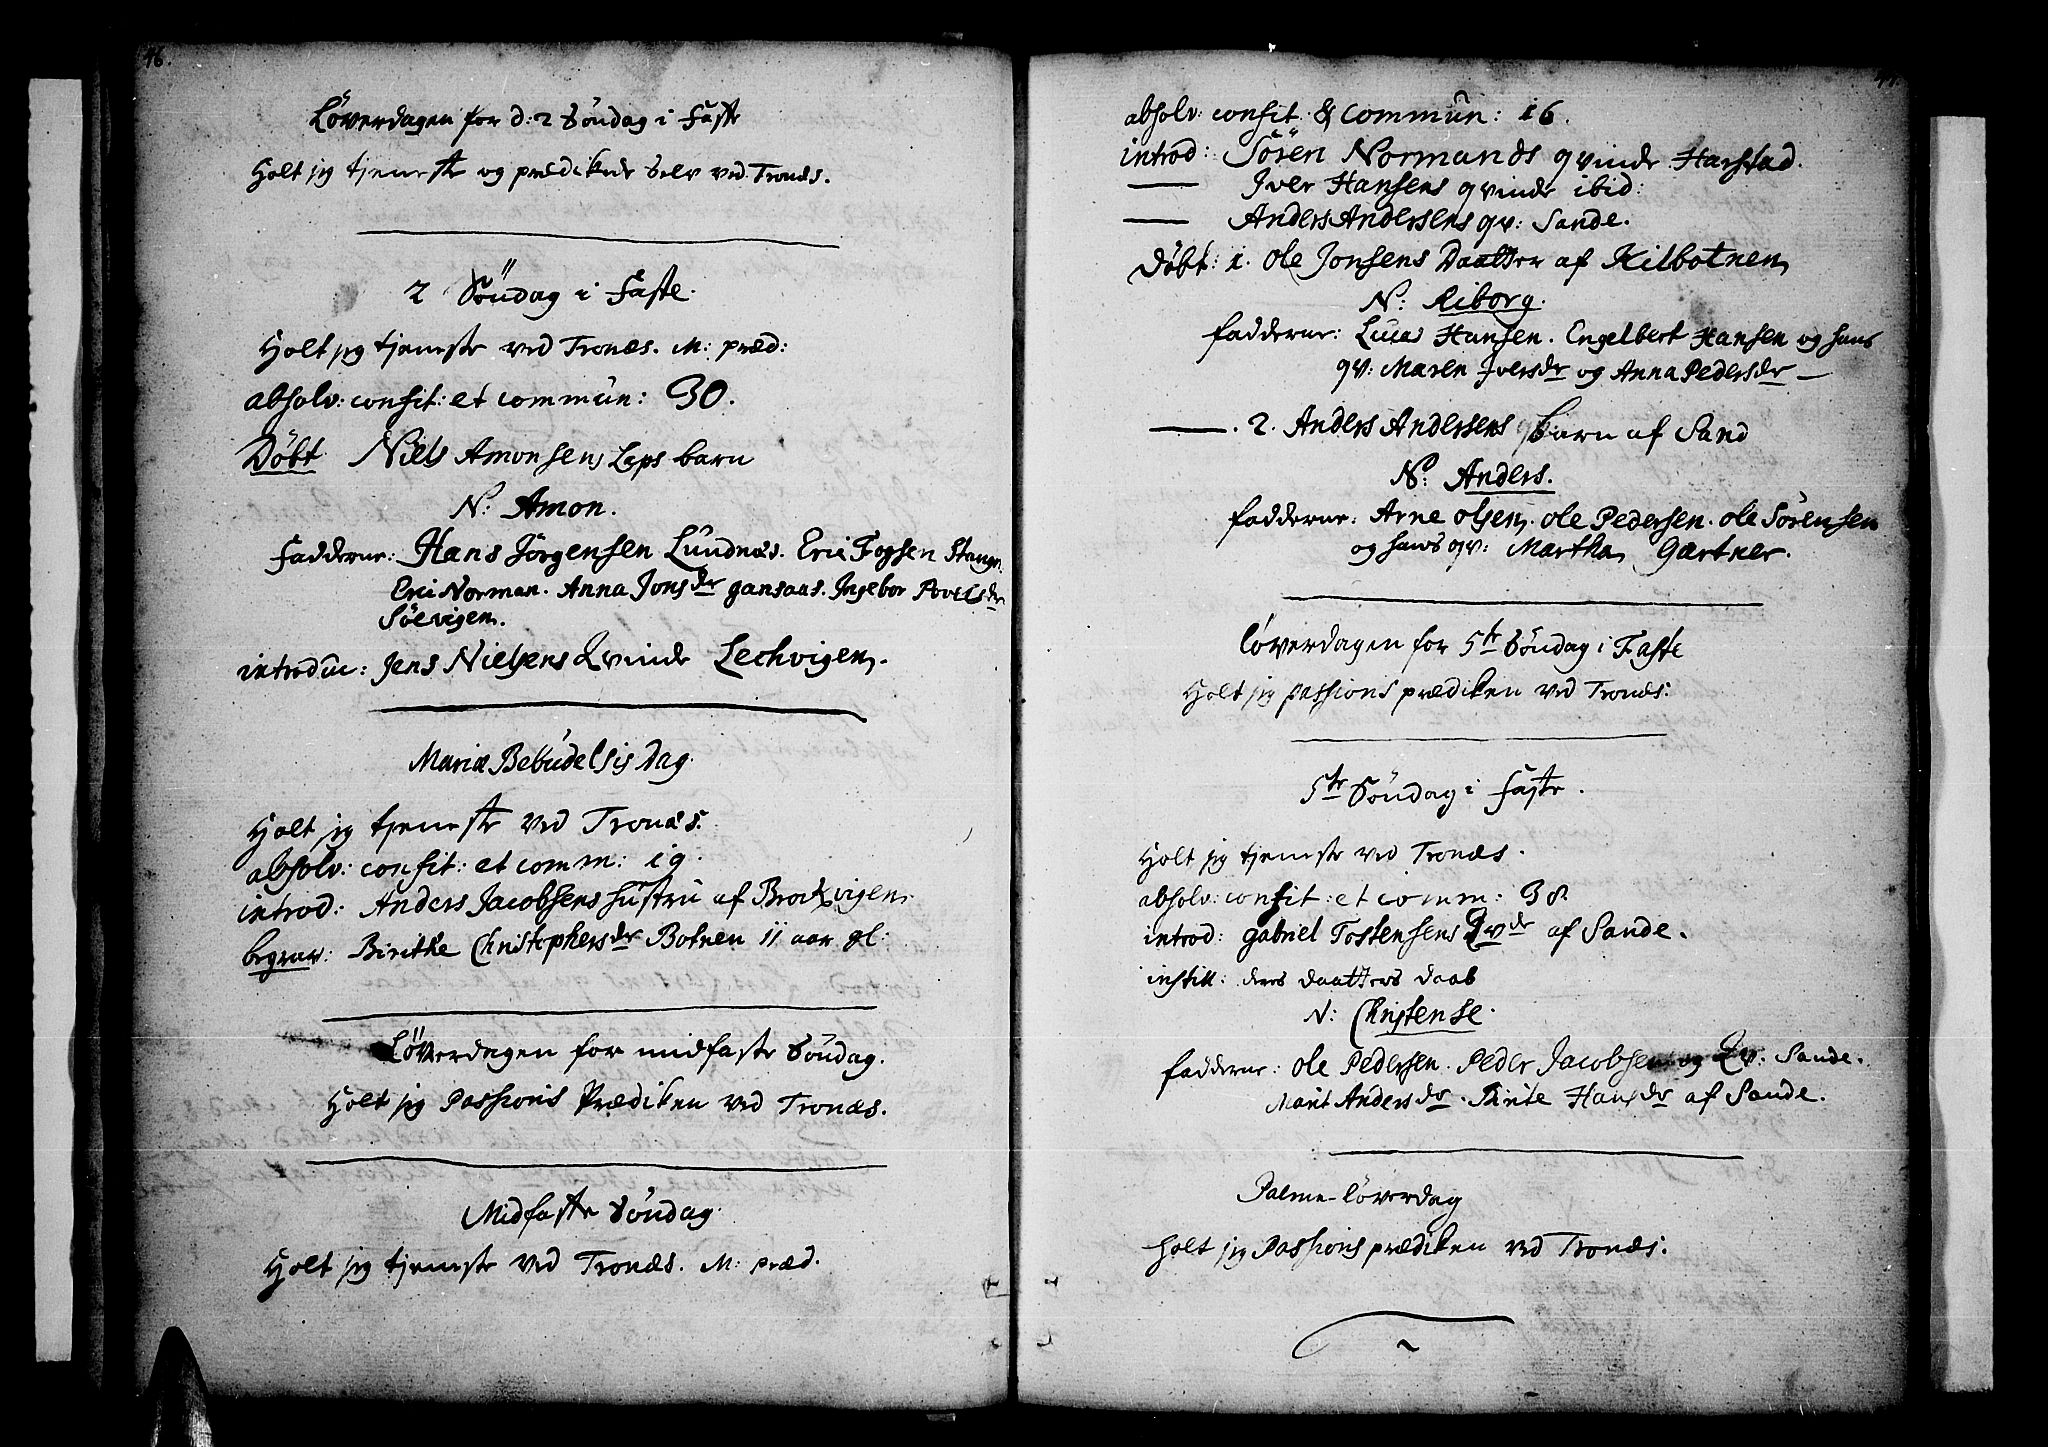 46.
Løverdagen for d: 2 Söndag i Faste
Holt jeg tjeneste og prædikede selv ved Tronæs.
2 Söndag i Faste.
Holt jeg tjeneste ved Tronæs. M: præd:
absolv: confit: et commun: 30.
Døbt Niels Amonsens Laps barn
N: Amon.
Fadderne: Hans Jörgensen Lundnæs. Eric Fogsen Stange.
Eric Norman. Anna Jonsdr gansaas. Ingebor Povelsdr
Söevigen.
introduc: Jens Nielsens Qvinde Lechvigen.
Mariæ Bebudelsis Dag.
Holt jeg tjeneste ved Tronæs.
absolv: confit: et comm: 19.
introd: Anders Jacobsens hustru af Brockvigen.
begrav: Birithe Christophersdr Botnen 11 aar gl:
Løverdagen for midfaste Söndag.
Holt jeg Passions Prædiken ved Tronæs.
Midfaste Söndag.
Holt jeg tjeneste ved Tronæs. M: præd.
absolv: confit & commun: 16.
introd: Sören Normands qvinde Harstad.
— Iver Hansens qvinde ibid:
— Anders Andersens qv: Sande.
Døbt: 1. Ole Jonsens Daatter af Kilbotnen
N: Riborg.
fadderne: Lucas Hansen. Engelbert Hansen og hans
qv: Maren Iversdr og Anna Pedersdr —
—. 2. Anders Andersens barn af Sand
N: Anders.
fadderne: Arne Olsen. Ole Pedersen. Ole Sörensen
og hans qv: Martha Gartner.
Løverdagen for 5te Söndag i Faste
Holt jeg passions prædiken ved Tronæs:
5te Söndag i Faste.
Holt jeg tjeneste ved Tronæs.
absolv: confit: et comm: 38.
introd: gabriel Tostensens Qvde af Sande.
instill: deres daatters daab
N: Christense.
fadderne: Ole Pedersen. Peder Jacobsen og Qv: Sande.
Marit Andersdr. Birite Hansdr af Sande.
Palme-Löverdag
Holt jeg Passions prædiken ved Tronæs.